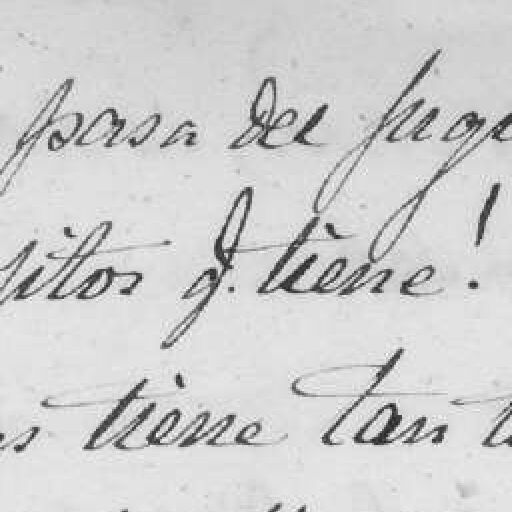 pasa del juga
sitos q. tiene!
tiene tan